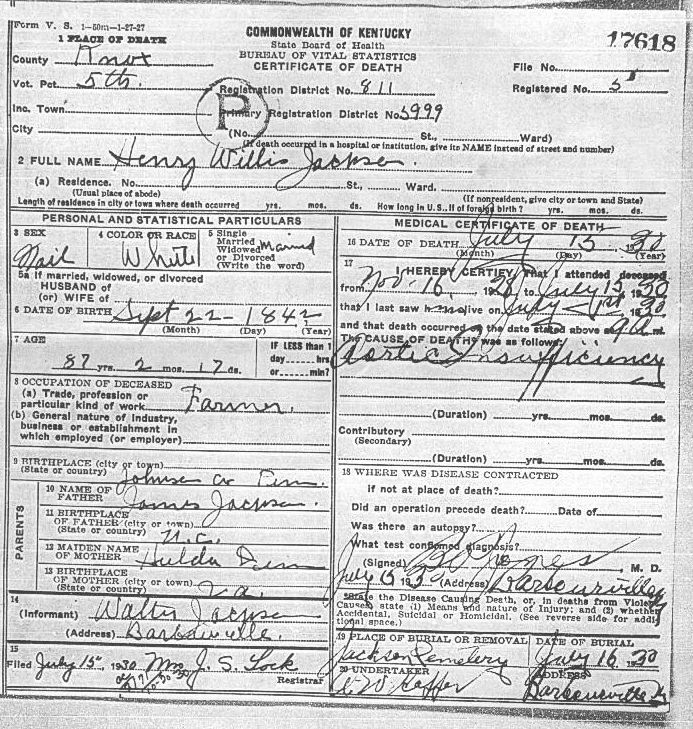 Form V. S. 1—50m—1-27-27
COMMONWEALTH OF KENTUCKY
State Board of Health
BUREAU OF VITAL STATISTICS
CERTIFICATE OF DEATH
17618
1 PLACE OF DEATH
County Knox
File No.
Vot. Pct. 5th.
Registration District No. 811
Registered No. 5
Inc. Town
P
Primary Registration District No. 5999
City
(No. St., Ward)
(If death occurred in a hospital or institution, give its NAME instead of street and number)
2 FULL NAME Henry Willis Jackson.
(a) Residence. No. St., Ward.
(Usual place of abode) (If nonresident, give city or town and State)
Length of residence in city or town where death occurred yrs. mos. ds. How long in U. S., If of foreign birth? yrs. mos. ds.
PERSONAL AND STATISTICAL PARTICULARS
3 SEX Mail
4 COLOR OR RACE White
5 Single
Married
Widowed
or Divorced
(Write the word)
Married
5a If married, widowed, or divorced
HUSBAND of
(or) WIFE of
6 DATE OF BIRTH Sept 22 - 1842
(Month) (Day) (Year)
7 AGE
87 yrs. 2 mos. 17 ds.
IF LESS than 1
day hrs
or min?
8 OCCUPATION OF DECEASED
(a) Trade, profession or
particular kind of work Farmer.
(b) General nature of Industry,
business or establishment in
which employed (or employer)
9 BIRTHPLACE (city or town)
(State or country) Johnson co
PARENTS
10 NAME OF
FATHER James Jackson.
11 BIRTHPLACE
OF FATHER (city or town)
(State or country) N.C.
12 MAIDEN NAME
OF MOTHER Hulda
13 BIRTHPLACE
OF MOTHER (city or town)
(State or country) Va.
14
(Informant) Walter Jackson
(Address) Barbourville
15
Filed July 15" 1930 Mrs J. S. Lock
Registrar
MEDICAL CERTIFICATE OF DEATH
16 DATE OF DEATH July 15 1930
(Month) (Day) (Year)
17
I HEREBY CERTIFY, That I attended deceased
from Nov. 16, 1928, to July 15 1930
that I last saw h alive on July 1st 1930
and that death occurred on the date stated above at 9 a m.
The CAUSE OF DEATH was as follows:
Aortic Insufficiency
(Duration) yrs. mos. ds.
Contributory
(Secondary)
(Duration) yrs. mos. ds.
18 WHERE WAS DISEASE CONTRACTED
if not at place of death?
Did an operation precede death? Date of
Was there an autopsy?
What test confirmed diagnosis?
(Signed) Jones M. D.
July 15 1930 (Address) Barbourville
*State the Disease Causing Death, or, in deaths from Violent
Causes, state (1) Means and nature of Injury; and (2) whether
Accidental, Suicidal or Homicidal. (See reverse side for addi-
tional space.)
19 PLACE OF BURIAL OR REMOVAL
Jackson Cemetery
DATE OF BURIAL
July 16 1930
20 UNDERTAKER
ADDRESS
Barbourville Ky